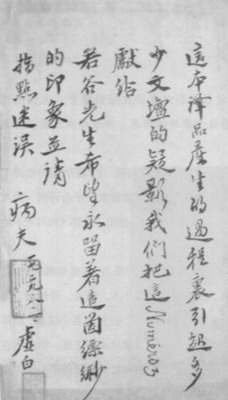 這本譯品產生的過程裏引起多
少文壇的疑影我們把這Numéro3
獻給
若谷先生希望永留著這個縹緲
的印象並請
指點迷誤
病夫
虛白